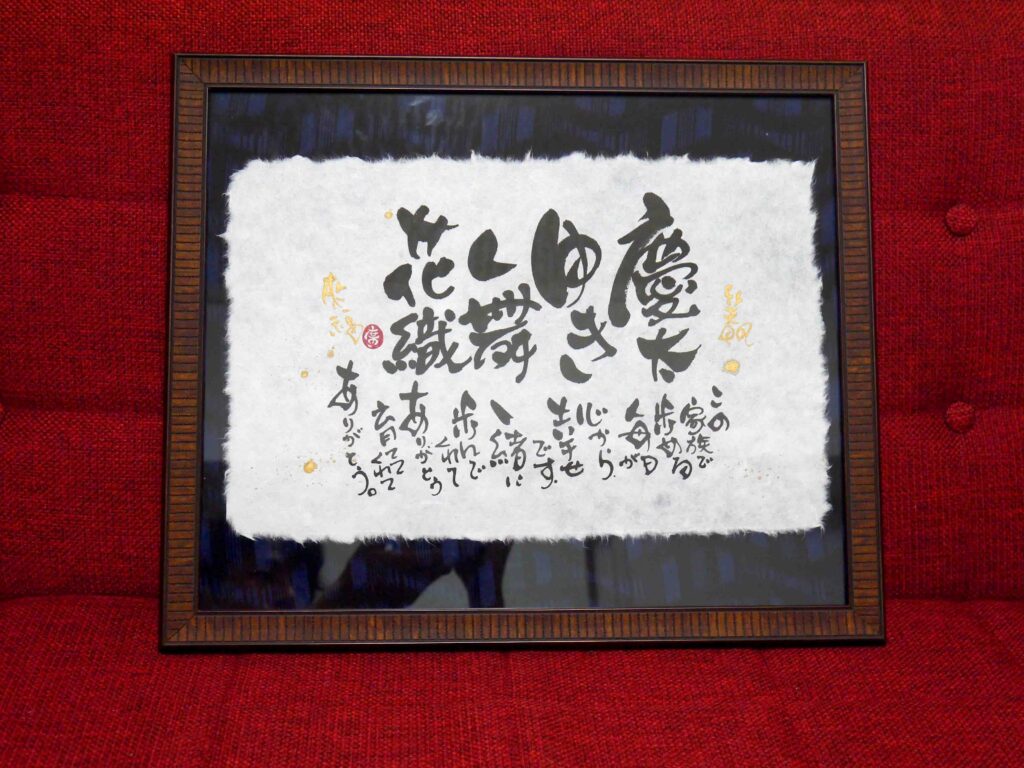 慶太
ゆき
一舞
花織
この
家族で
歩める
毎日が
心から
幸せ
です.
一緒に
歩んで
くれて
ありがとう
育てて
くれて
ありがとう。